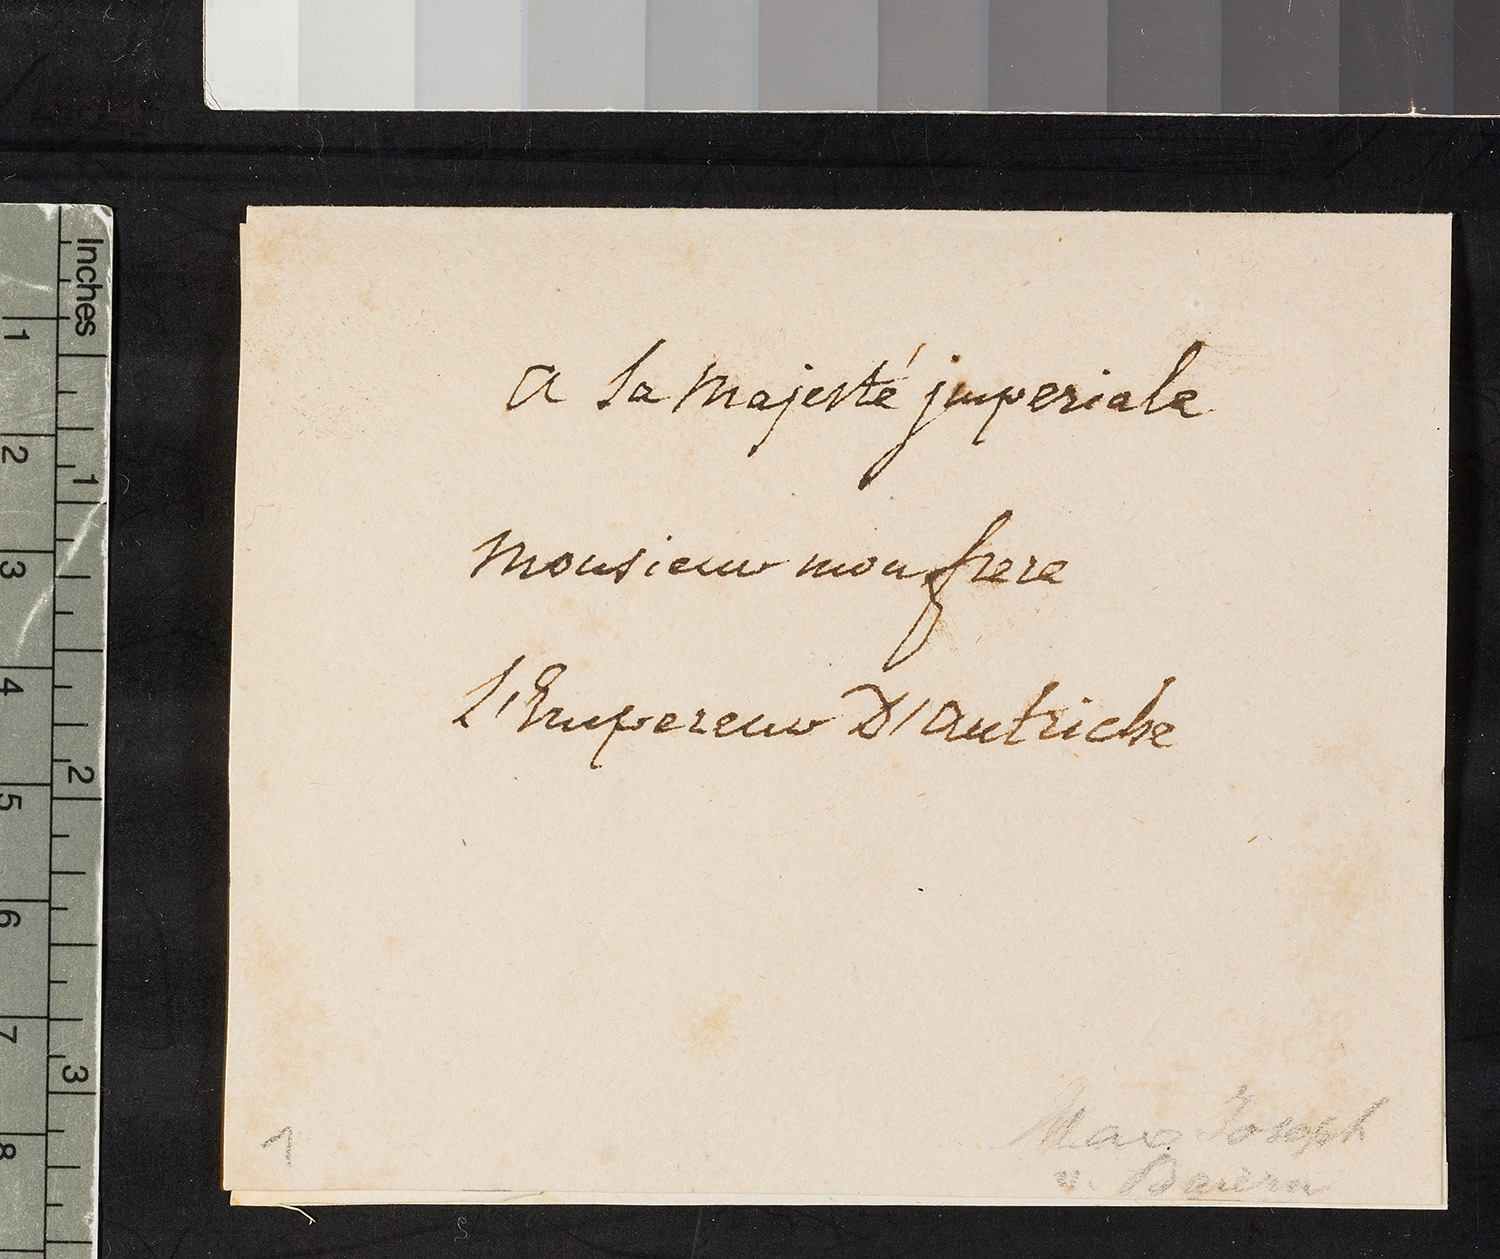 Inches
1
2
3
4
5
6
7
8
1
2
3
a Sa Majesté jmperiale
Monsieur mon frere
L'Empereur D'autriche
1
Max Joseph
v. Baiern